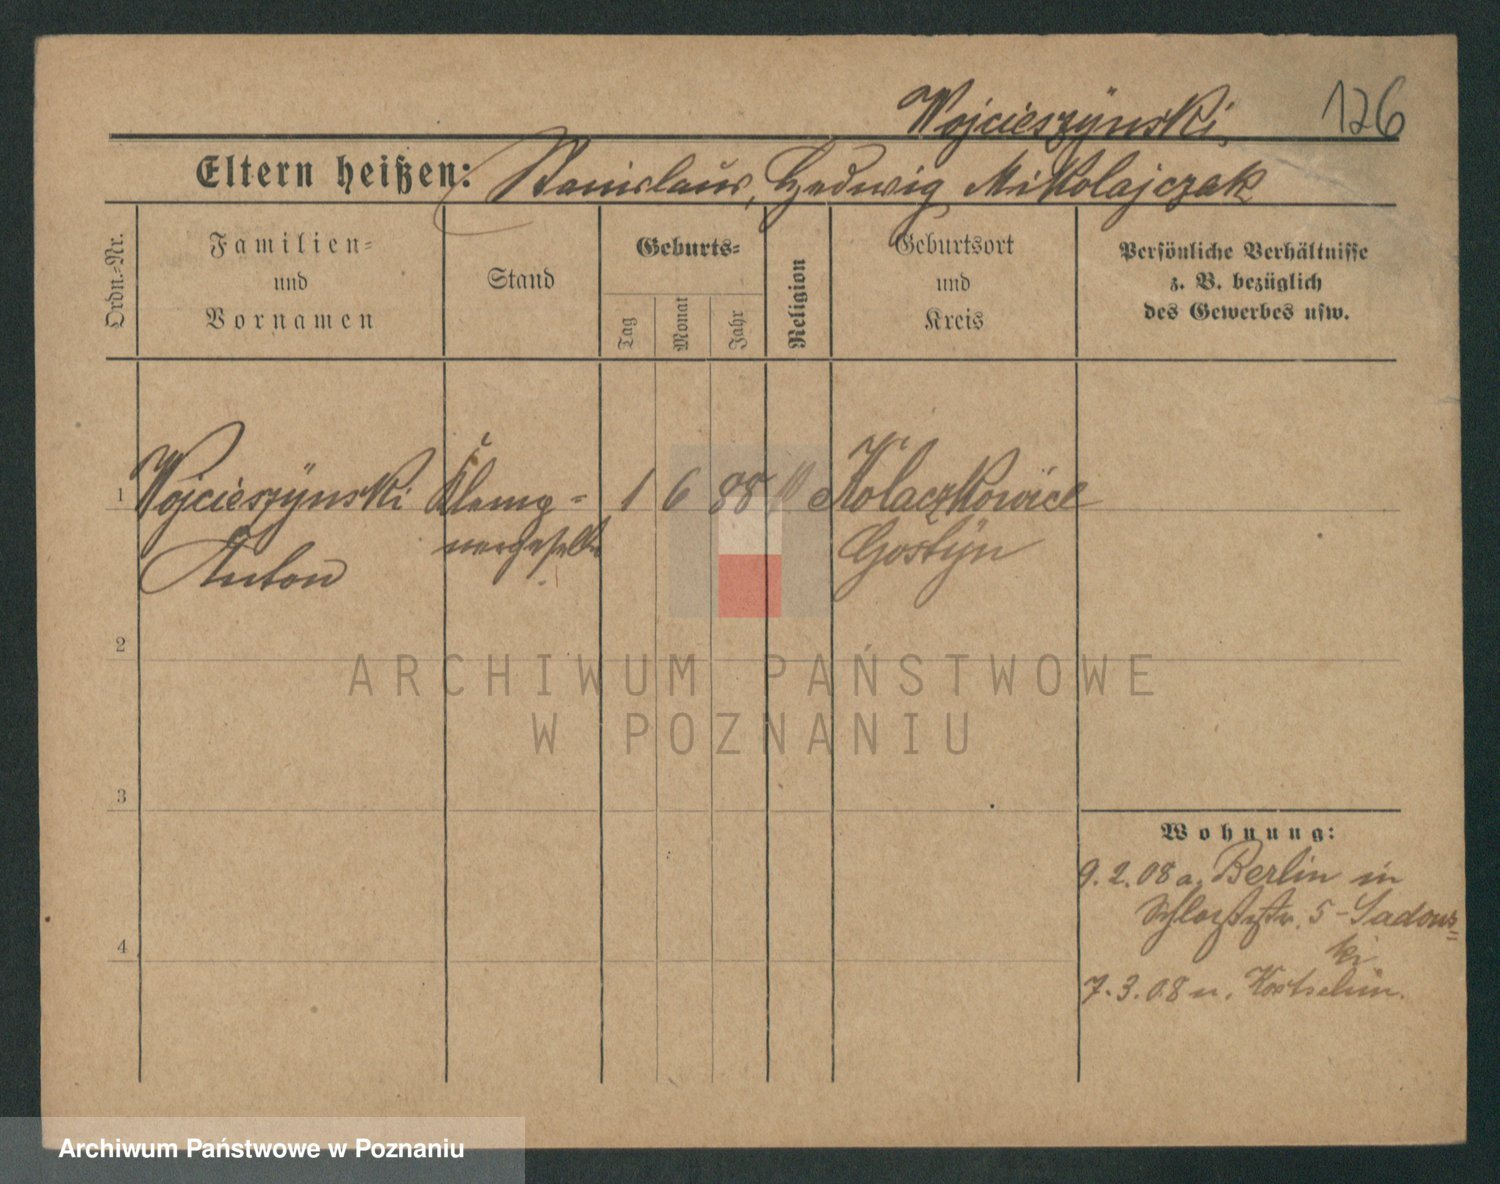 126
Wojcieszÿnski,
Eltern heißen: Stanislaus, Hedwig Mikolajczak
Ordn.-Nr.
Familien-
und
Vornamen
Stand
Geburts-
Tag
Monat
Jahr
Religion
Geburtsort
und
Kreis
Persönliche Verhältnisse
z. B. bezüglich
des Gewerbes usw.
1 Wojcieszÿnski Klemp- 1 6 88 Kolaczkowice
Anton nergeselle Gostÿn
2
3
4
ARCHIWUM PAŃSTWOWE
W POZNANIU
Wohnung:
9.2.08 a. Berlin in
Schloßstr. 5 - Sadows-
ki
7.3.08 n. Kostschin.
Archiwum Państwowe w Poznaniu